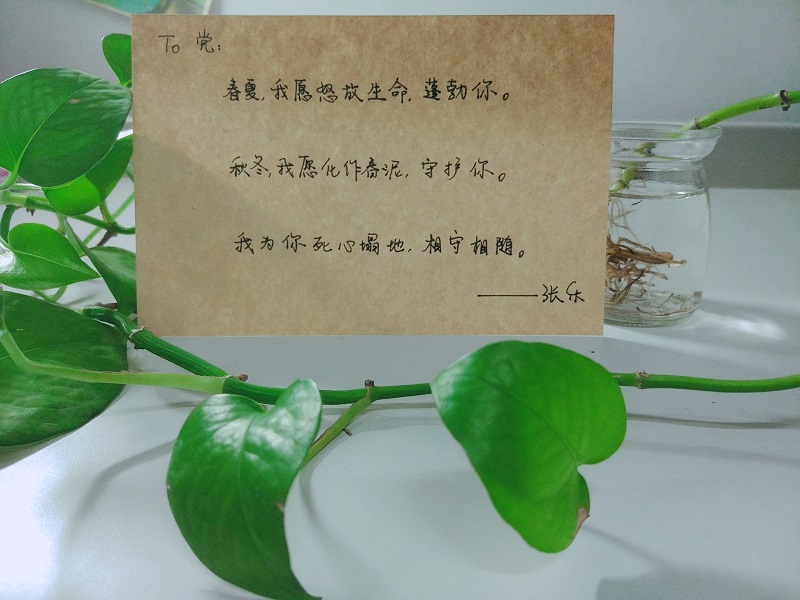 To 党:
春夏,我愿怒放生命,蓬勃你。
秋冬,我愿化作春泥,守护你。
我为你死心塌地,相守相随。
——张乐